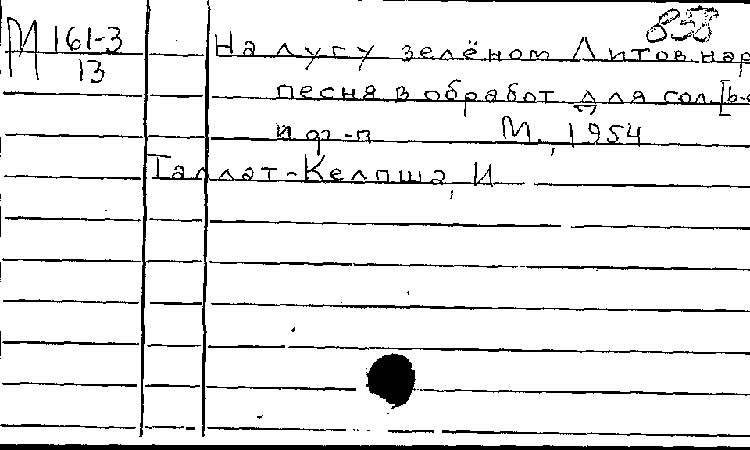 858
М 161-3
13
На лугу зелёном Литов нар
песня в обработ для сол [b-c
и ф-п М., 1954
Таллат-Келпша, И